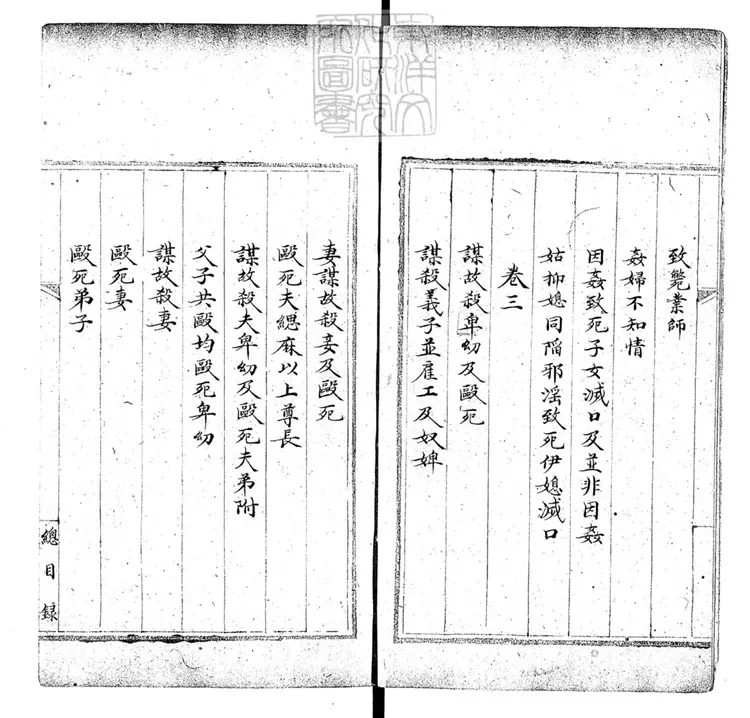 致斃業師
姦婦不知情
因姦致死子女滅口及並非因姦
姑抑媳同陷邪淫致死伊媳滅口
卷三
謀故殺卑幼及毆死
謀殺義子並雇工及奴婢
妻謀故殺妾及毆死
毆死夫緦麻以上尊長
謀故殺夫卑幼及毆死夫弟附
父子共毆均毆死卑幼
謀故殺妻
毆死妻
毆死弟子
總目錄
東洋文化研究所圖書